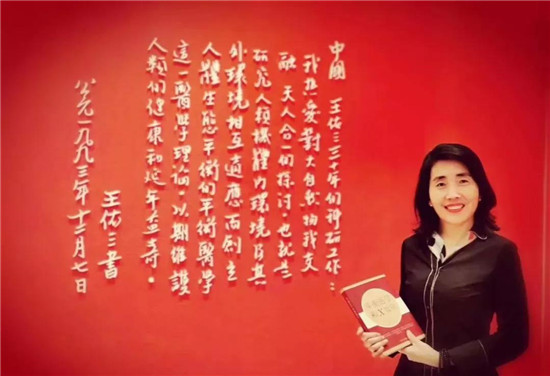 中國 王佑三三十年的科研工作:
我热爱對大自然物我交
融 天人合一的探讨,也就是
研究人類機體内環境與其
外環境相互適應而創立
人體生態平衡的平衡醫学
這一醫学理論,以期维護
人類的健康和延年益寿。
王佑三書
公元一九九三年十二月七日